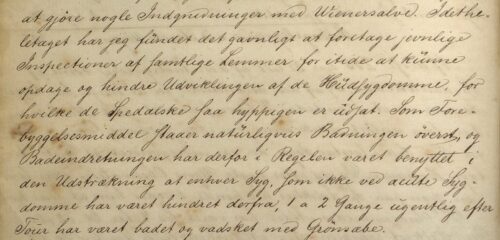 at gjöre nogle Indgnidninger med Wienersalve. Idethe-
letaget har jeg fundet det gavnligt at foretage jevnlige
Inspectioner af samtlige Lemmer for itide at kunne
opdage og hindre Udviklingen af de Hudsygdomme, for
hvilke de Spedalske saa hyppigen er udsat. Som Fore-
byggelsesmiddel staaer naturligviis Badningen överst, og
Badeindretningen har derfor i Regelen været benyttet i
den Udstrækning at enhver Syg, som ikke ved acute Syg-
domme har været hindret derfra, 1 a 2 Gange ugentlig efter
Tour har været badet og vadsket med Grönsæbe.